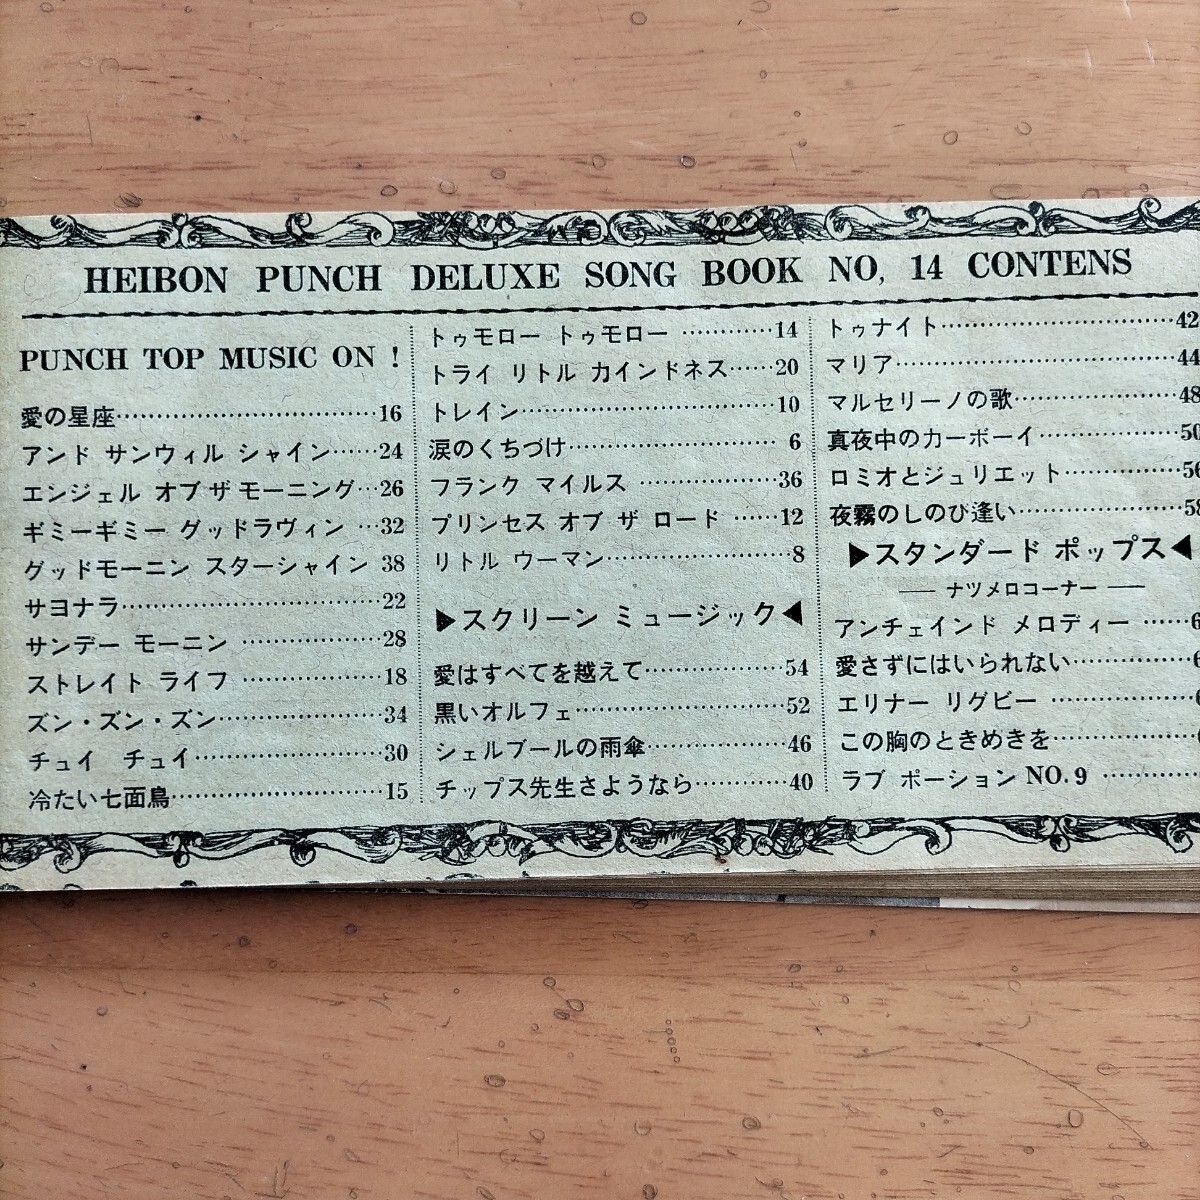 HEIBON PUNCH DELUXE SONG BOOK NO, 14 CONTENS
PUNCH TOP MUSIC ON !
愛の星座……………………………16
アンド サンウィル シャイン……24
エンジェル オブ ザ モーニング…26
ギミーギミー グッドラヴィン …32
グッドモーニン スターシャイン 38
サヨナラ……………………………22
サンデー モーニン ………………28
ストレイト ライフ ………………18
ズン・ズン・ズン…………………34
チュイ チュイ……………………30
冷たい七面鳥………………………15
トゥモロー トゥモロー …………14
トライ リトル カインドネス……20
トレイン……………………………10
涙のくちづけ……………………… 6
フランク マイルス ………………36
プリンセス オブ ザ ロード ……12
リトル ウーマン…………………… 8
▶スクリーン ミュージック◀
愛はすべてを越えて………………54
黒いオルフェ………………………52
シェルブールの雨傘………………46
チップス先生さようなら…………40
トゥナイト…………………………42
マリア………………………………44
マルセリーノの歌…………………48
真夜中のカーボーイ………………50
ロミオとジュリエット……………56
夜霧のしのび逢い…………………58
▶スタンダード ポップス◀
── ナツメロコーナー ──
アンチェインド メロディー ……6
愛さずにはいられない……………6
エリナー リグビー ………………
この胸のときめきを………………
ラブ ポーション NO. 9 …………